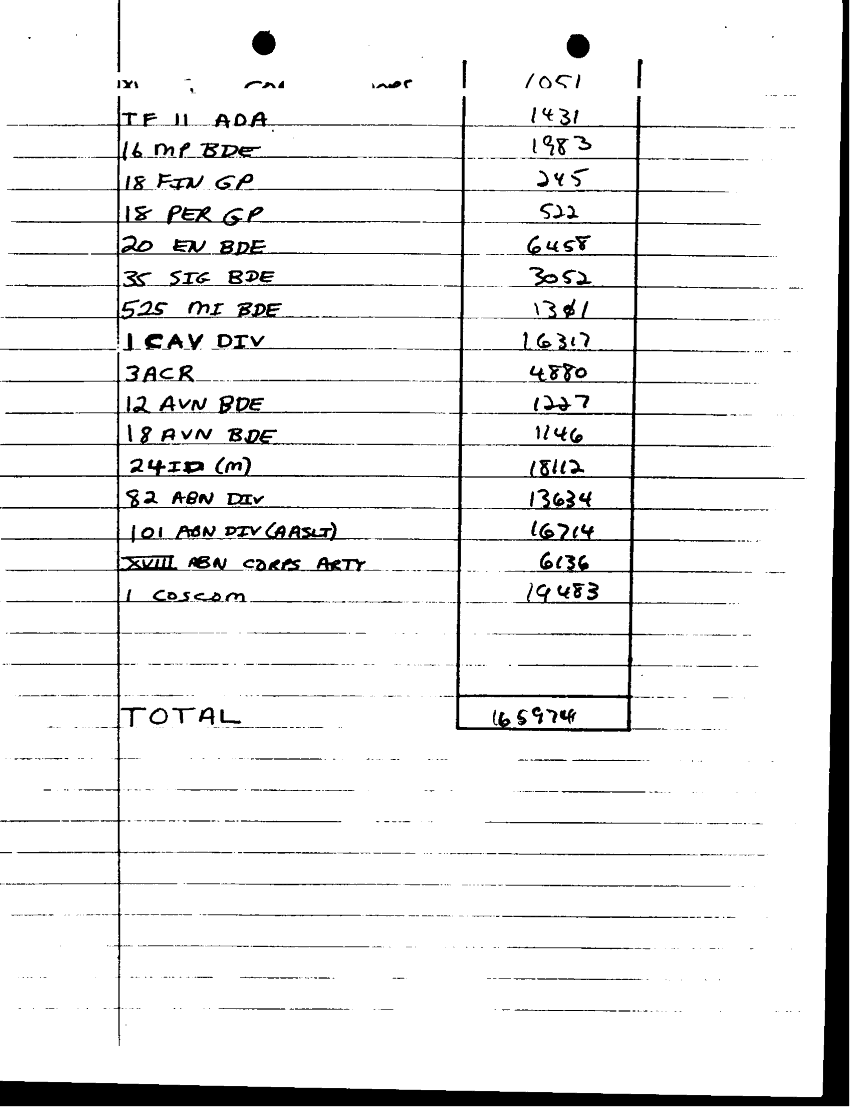 1051
TF 11 ADA 1431
16 MP BDE 1983
18 FIN GP 245
18 PER GP 522
20 EN BDE 6458
35 SIG BDE 3052
525 MI BDE 1301
1 CAV DIV 16317
3ACR 4880
12 AVN BDE 1227
18 AVN BDE 1146
24ID (M) 18112
82 ABN DIV 13634
101 ABN DIV (AASLT) 16714
XVIII ABN CORPS ARTY 6136
1 COSCOM 19483
TOTAL 165974